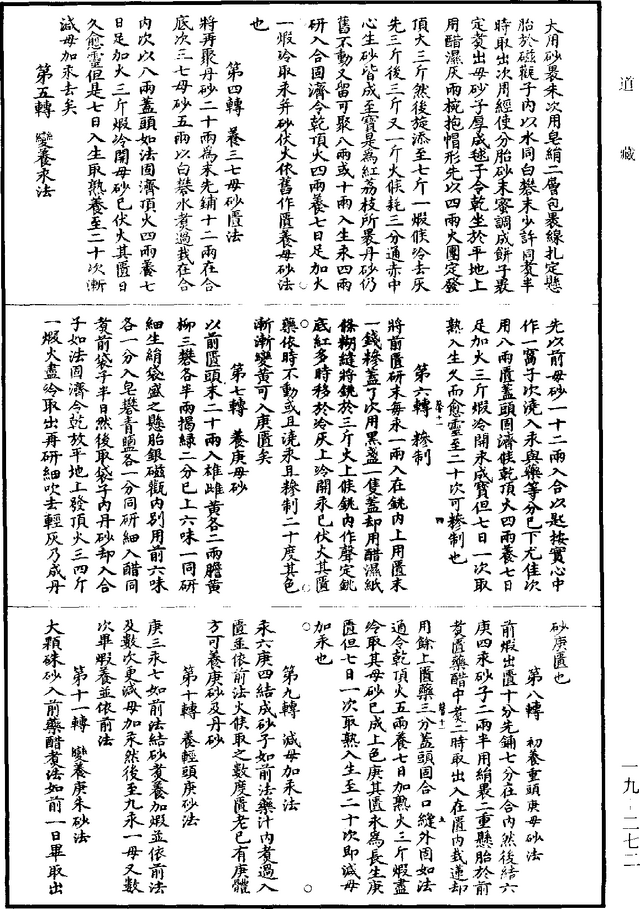 道藏
大用砂裹朱次用皂絹二層包裹線扎定懸
胎於磁觀子内以水同白礬末少許同煑半
時取出次用經使分胎砂末蜜調成餅子裹
定煑出母砂子厚成毬子令乾坐於平地上
用醋濕灰兩椀抱帽形先以四兩火團定發
頂火三斤然後旋添至七斤一煅候冷去灰
先三斤後三斤又一斤火候耗三分通赤中
心生砂皆成至寳是為紅荔枝所裹丹砂仍
舊不動又留可聚八兩或十兩入生汞四兩
研入合固濟令乾頂火四兩養七日足加火
一煅冷取汞并砂伏火依舊作匱養母砂法
也
第四轉　養三七母砂匱法
將再聚丹砂二十兩為末先鋪十二兩在合
底次三七母砂五兩以白礬水煑過栽在合
内次以八兩蓋頭如法固濟頂火四兩養七
日足加火三斤煅冷開母砂已伏火其匱日
久愈靈但是七日入生取熟養至二十次漸
減母加汞去矣
第五轉　變養汞法
先以前母砂一十二兩入合以匙按實心中
作一窩子次澆入汞與藥等分已下尤佳次
用八兩匱蓋頭固濟候乾頂火四兩養七日
足加火三斤煅冷開汞成寳但七日一次取
熟入生久而愈靈至二十次可糝制也
第六轉　糝制
將前匱研末每汞一兩入在銚内上用匱末
一錢糝蓋了次用黑盞一隻蓋却用醋濕紙
條糊縫將銚於三斤火上候銚内作聲定銚
底紅多時移於冷灰上冷開汞已伏火其匱
藥依時不動或且澆汞且糝制二十度其色
漸漸變黄可入庚匱矣
第七轉　養庚母砂
以前匱頭末二十兩入雄雌黄各二兩膽黄
柳三礬各半兩揭緑二分已上六味一同研
細生絹袋盛之懸胎銀磁觀内别用前六味
各一分入皂礬青鹽各一分同研細入醋同
煑前袋子半日然後取袋子内丹砂却入合
子如法固濟令乾放平地上發頂火三四斤
一煅火盡冷取出再研細吹去輕灰乃成丹
砂庚匱也
第八轉　初養重頭庚母砂法
前煅出匱十分先鋪七分在合内然後結六
庚四汞砂子二兩半用絹裹二重懸胎於前
煑匱藥醋中煑二時取出入在匱内栽蓮却
用餘上匱藥三分蓋頭固合口縫外固如法
通令乾頂火五兩養七日加熟火三斤煅盡
冷取其母砂已成上色庚其匱永為長生庚
匱但七日一次取熟入生至二十次即減母
加汞也
第九轉　減母加汞法
汞六庚四結成砂子如前法藥汁内煑過入
匱並依前法火候取之數度匱老已有庚體
方可養庚砂及丹砂
第十轉　養輕頭庚砂法
庚三汞七如前法結砂煑養加煅並依前法
及數次更減母加汞然後至九汞一母又數
次畢煅養並依前法
第十一轉　變養庚朱砂法
大顆硃砂入前藥醋煑法如前一日畢取出
一九－二七二